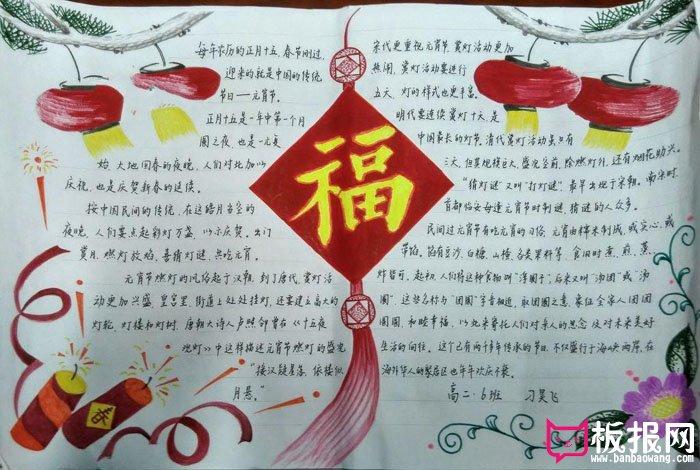 每年农历的正月十五,春节刚过,
迎来的就是中国的传统
节日——元宵节。
正月十五是一年中第一个月
圆之夜,也是一元复
始,大地回春的夜晚,人们对此加以
庆祝,也是庆贺新春的延续。
按中国民间的传统,在这皓月当空的
夜晚,人们要点起彩灯万盏,以示庆贺。出门
赏月、燃灯放焰、喜猜灯谜、共吃元宵
元宵节燃灯的风俗起于汉朝,到了唐代,赏灯活
动更加兴盛,皇宫里、街道上处处挂灯,还要建立高大的
灯轮、灯楼和灯树,唐朝大诗人卢照邻曾在《十五夜
观灯》中这样描述元宵节燃灯的盛况
"接汉疑星落,依楼似
月悬。"
福
春
宋代更重视元宵节,赏灯活动更加
热闹,赏灯活动要进行
五天,灯的样式也更丰富。
明代要连续赏灯十天,是
中国最长的灯节,清代赏灯活动虽只有
三天,但其规模巨大,盛况空前,除燃灯外,还有烟花助兴。
"猜灯谜"又叫"打灯谜",最早出现于宋朝。南宋时,
首都临安每逢元宵节时制谜,猜谜的人众多。
民间过元宵节有吃元宵的习俗,元宵由糯米制成,或实心,或
带馅。馅有豆沙、白糖、山楂、各类果料等,食用时煮、煎、蒸、
炸皆可。起初,人们将这种食物叫"浮圆子",后来又叫"汤团"或"汤
圆",这些名称与"团圆"字音相近,取团圆之意,象征全家人团团
圆圆,和睦幸福,以此来寄托人们对亲人的思念及对未来美好
生活的向往。这个已有两千多年传承的节日,不仅盛行于海峡两岸,在
海外华人的聚居区也年年欢庆不衰。
高二·6班 刁昊飞
板报网
www.banbaowang.com